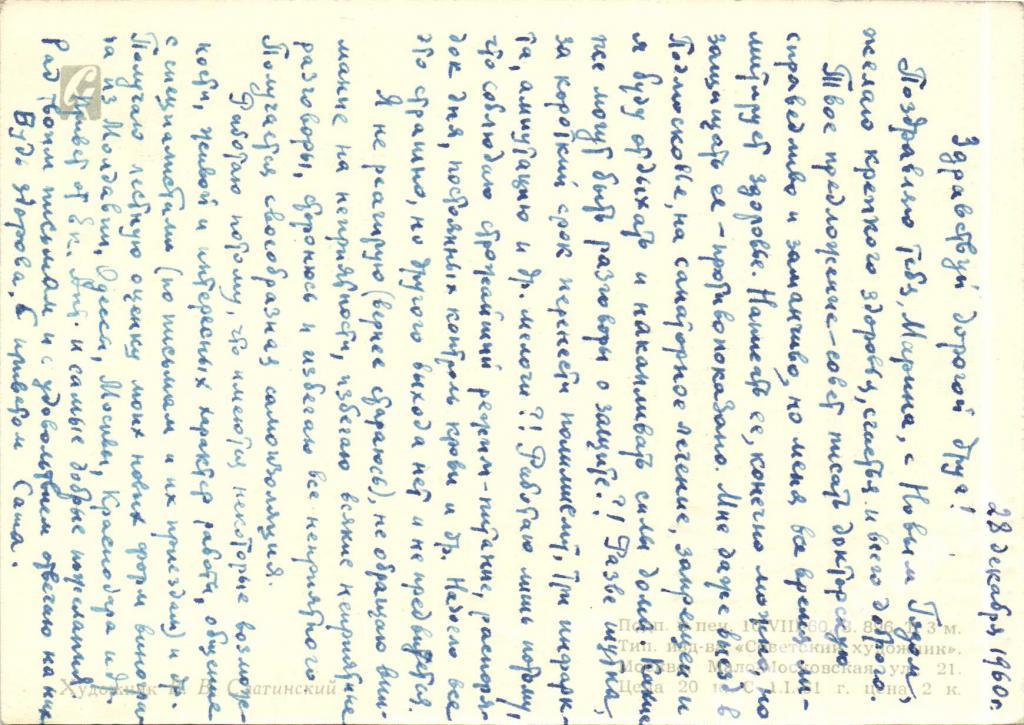 28 декабря 1960г.
Здравствуй дорогой друг!
Поздравляю тебя, Марина, с Новым Годом,
желаю крепкого здоровья, счастья и всего доброго.
Твое предложение-совет писать докторскую
справедливо и заманчиво, но меня все время ли-
митирует здоровье. Написать ее, конечно можно, но
защищать ее - противопоказано. Мне даже выезд в
Подмосковье, на санаторное лечение, запрещен и
я буду отдыхать и накапливать силы дома. Какие
же могут быть разговоры о защите?! Разве шутка,
за короткий срок перенести полиомиелит, три инфарк-
та, ампутацию и др. мелочи?! Работаю лишь потому,
что соблюдаю строжайший режим - питание, распоря-
док дня, постоянных контроль крови и др. Надоело все
это страшно, но другого выхода нет и не предвидится.
Я не реагирую (вернее стараюсь), не обращаю вни-
мание на неприятности, избегаю всякие неприятные
разговоры, сторонюсь и избегаю все неприятного
Получается своеобразная самоизоляция.
Работаю потому, что имеются некоторые возмож-
ности, живой и интересных характер работы, общение
с специалистами (по письмам и их приездам) и др.
Получило лестную оценку моих новых форм виногра-
да из Молдавии, Одессы, Москвы, Краснодара и др.
Привет от Ек. и самые добрые пожелания.
Рад твоим письмам и с удовольствием отвечаю на них
Будь здорова, С приветом Саша.
Подп. к печ. 10/VIII 60 З. 836 Т. 3 м.
Тип. изд-ва «Советский художник».
Москва, Мало-Московская ул., 21.
Цена 20 к. С 1.I.61 г. цена 2 к.
Художник В. Слатинский